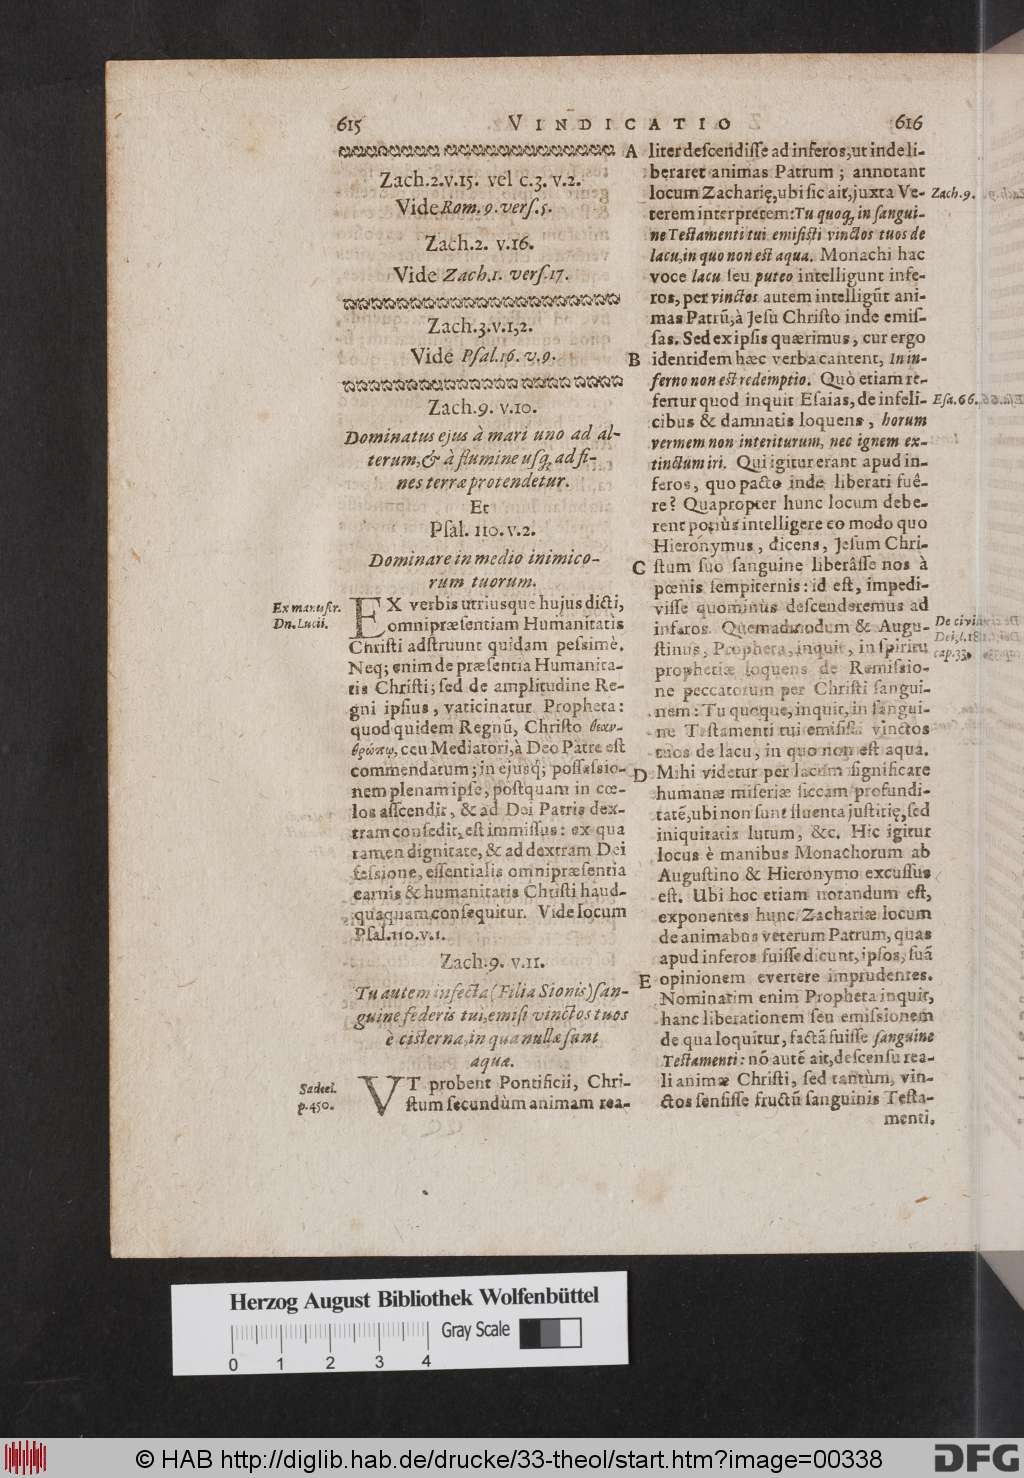 615
VINDICATIO
616
Zach.2.v.15. vel c.3. v.2.
Vide Rom. 9. vers. 5.
Zach.2. v.16.
Vide Zach.1. vers.17.
Zach.3.v.1,2.
Vide Psal.16. v.9.
Zach.9. v.10.
Dominatus ejus à mari uno ad al-
terum, & à flumine usq; ad fi-
nes terræ protendetur.
Et
Psal. 110. v.2.
Dominare in medio inimico-
rum tuorum.
Ex manuscr.
Dn. Lucii.
EX verbis utriusque hujus dicti,
omnipræsentiam Humanitatis
Christi adstruunt quidam pessimè.
Neq; enim de præsentia Humanita-
tis Christi; sed de amplitudine Re-
gni ipsius, vaticinatur Propheta:
quod quidem Regnũ, Christo θεαν-
θρώπῳ, ceu Mediatori, à Deo Patre est
commendatum; in ejusq; possessio-
nem plenam ipse, postquam in cœ-
los ascendit, & ad Dei Patris dex-
tram consedit, est immissus: ex qua
tamen dignitate, & ad dextram Dei
sessione, essentialis omnipræsentia
carnis & humanitatis Christi haud-
quaquam consequitur. Vide locum
Psal.110.v.1.
Zach.9. v.11.
Tu autem infecta (Filia Sionis) san-
guine fœderis tui, emisi vinctos tuos
è cisterna, in qua nullæ sunt
aquæ.
Sadeel.
p.450.
VT probent Pontificii, Chri-
stum secundùm animam rea-
A liter descendisse ad inferos, ut inde li-
beraret animas Patrum; annotant
locum Zacharię, ubi sic ait, juxta Ve-
Zach.9.
terem interpretem: Tu quoq; in sangui-
ne Testamenti tui emisisti vinctos tuos de
lacu, in quo non est aqua. Monachi hac
voce lacu seu puteo intelligunt infe-
ros, per vinctos autem intelligũt ani-
mas Patrũ, à Jesu Christo inde emis-
sas. Sed ex ipsis quærimus, cur ergo
B identidem hæc verba cantent, In in-
ferno non est redemptio. Quò etiam re-
fertur quod inquit Esaias, de infeli-
Esa.66.
cibus & damnatis loquens, horum
vermem non interiturum, nec ignem ex-
tinctum iri. Qui igitur erant apud in-
feros, quo pacto inde liberati fuê-
re? Quapropter hunc locum debe-
rent potiùs intelligere eo modo quo
Hieronymus, dicens, Jesum Chri-
C stum suo sanguine liberâsse nos à
pœnis sempiternis: id est, impedi-
visse quominùs descenderemus ad
inferos. Quemadmodum & Augu-
De civi.
Dei, l.18.
cap.33.
stinus, Propheta, inquit, in spiritu
prophetiæ loquens de Remissio-
ne peccatorum per Christi sangui-
nem: Tu quoque, inquit, in sangui-
ne Testamenti tui emisisti vinctos
tuos de lacu, in quo non est aqua.
D Mihi videtur per lacum significare
humanæ miseriæ siccam profundi-
tatẽ, ubi non sunt fluenta justitię, sed
iniquitatis lutum, &c. Hic igitur
locus è manibus Monachorum ab
Augustino & Hieronymo excussus
est. Ubi hoc etiam notandum est,
exponentes hunc Zachariæ locum
de animabus veterum Patrum, quas
apud inferos fuisse dicunt, ipsos, suã
E opinionem evertere imprudentes.
Nominatim enim Propheta inquit,
hanc liberationem seu emissionem
de qua loquitur, factã fuisse sanguine
Testamenti: nõ autẽ ait, descensu rea-
li animæ Christi, sed tantùm, vin-
ctos sensisse fructũ sanguinis Testa-
menti,
Herzog August Bibliothek Wolfenbüttel
Gray Scale
0 1 2 3 4
© HAB http://diglib.hab.de/drucke/33-theol/start.htm?image=00338
DFG